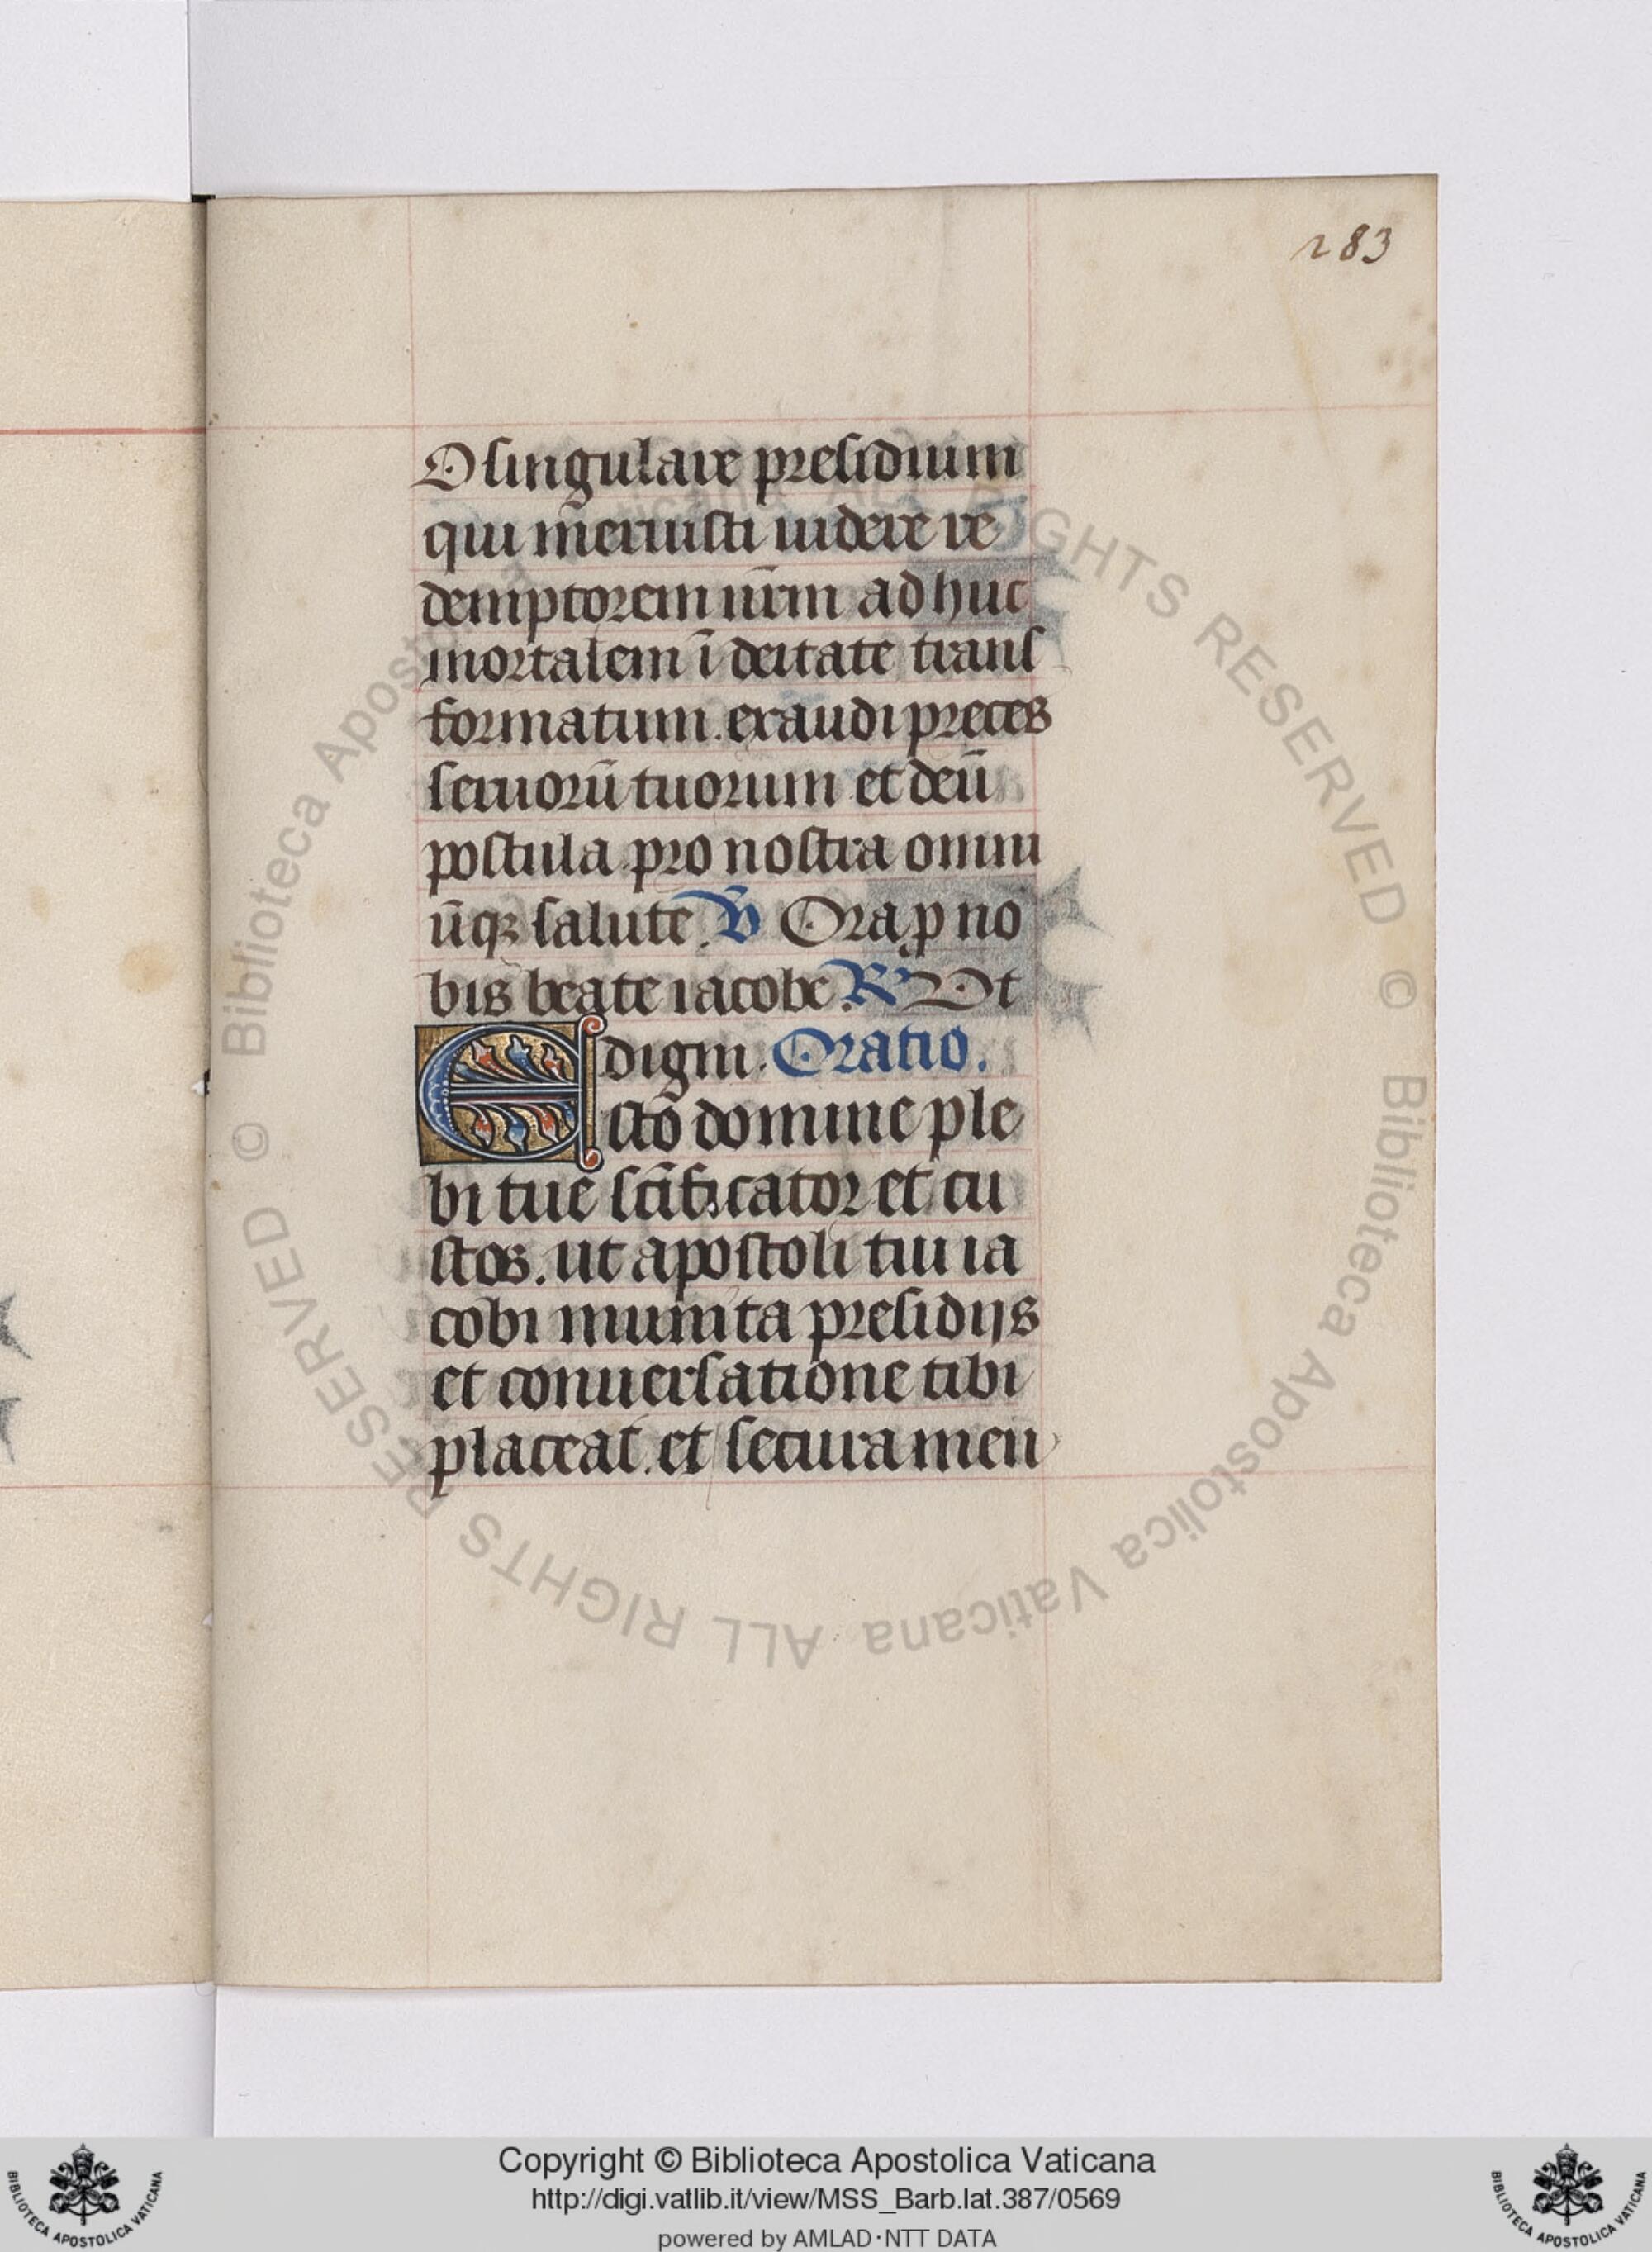 283
O singulare presidium
qui meruisti uidere re
demptorem nr̄m ad huc
mortalem ī deitate trans
formatum. exaudi preces
seruorū tuorum et deū
postula pro nostra omni
ūqꝫ salute. V̄ Ora ꝓ no
bis beate iacobe. R̄ Ut
digni. Oratio.
Esto domine ple
bi tue sc̄ificator et cu
stos. ut apostoli tui ia
cobi munita presidijs
et conuersatione tibi
placeat. et secura men
© Biblioteca Apostolica Vaticana ALL RIGHTS RESERVED © Biblioteca Apostolica Vaticana ALL RIGHTS RESERVED
Copyright © Biblioteca Apostolica Vaticana
http://digi.vatlib.it/view/MSS_Barb.lat.387/0569
powered by AMLAD·NTT DATA
BIBLIOTECA APOSTOLICA VATICANA
BIBLIOTECA APOSTOLICA VATICANA